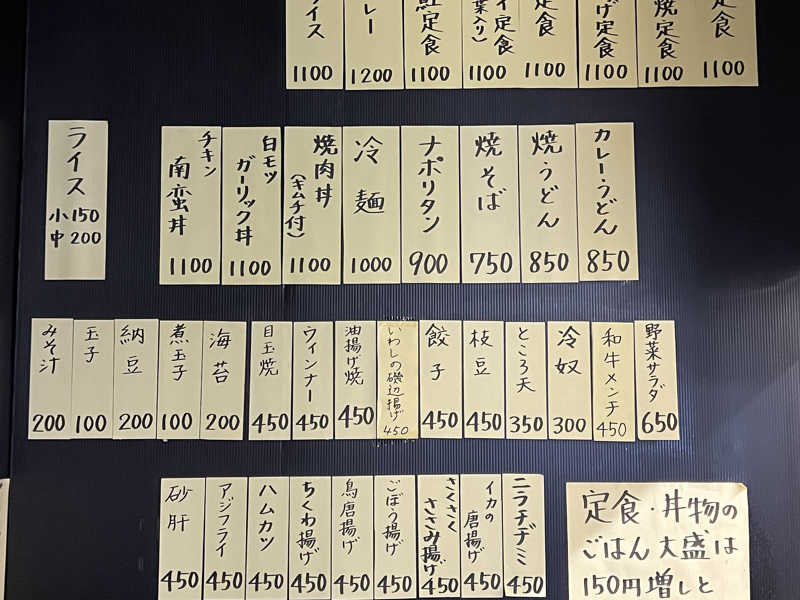 カレーうどん
850
焼うどん
850
焼そば
750
ナポリタン
900
冷麺
1000
焼肉丼
(キムチ付)
1100
白モツ
ガーリック丼
1100
チキン
南蛮丼
1100
ライス
小150
中200
定食
1100
焼定食
1100
げ定食
1100
定食
1100
イ定食
葉入り)
1100
鮭定食
1100
レー
1200
イス
1100
野菜サラダ
650
和牛メンチ
450
冷奴
300
ところ天
350
枝豆
450
餃子
450
いわしの磯辺揚げ
450
油揚げ焼
450
ウィンナー
450
目玉焼
450
海苔
200
煮玉子
100
納豆
200
玉子
100
みそ汁
200
ニラチヂミ
450
イカの
唐揚げ
450
さくさく
ささみ揚げ
450
ごぼう揚げ
450
鳥唐揚げ
450
ちくわ揚げ
450
ハムカツ
450
アジフライ
450
砂肝
450
定食・丼物の
ごはん大盛は
150円増しと